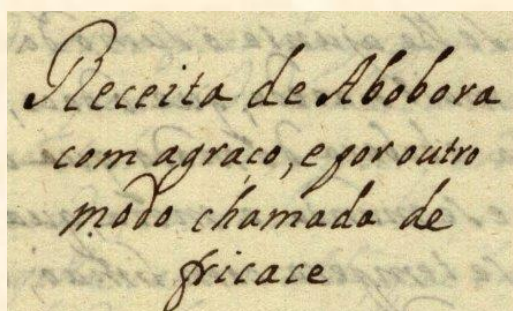 Receita de Abobora
com agraço, e por outro
modo chamada de
fricace